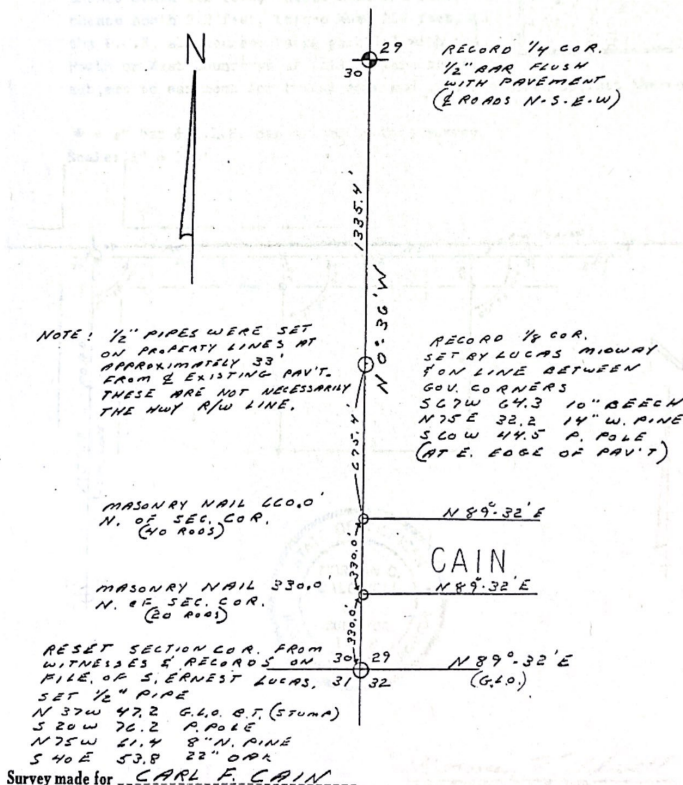 N
30 29
RECORD 1/4 COR.
1/2" BAR FLUSH
WITH PAVEMENT
(℄ ROADS N-S-E-W)
1335.4'
N 0°-36'W
NOTE: 1/2" PIPES WERE SET
ON PROPERTY LINES AT
APPROXIMATELY 33'
FROM ℄ EXISTING PAV'T.
THESE ARE NOT NECESSARILY
THE HWY R/W LINE.
RECORD 1/8 COR.
SET BY LUCAS MIDWAY
& ON LINE BETWEEN
GOV. CORNERS
S67W 64.3 10" BEECH
N75E 32.2 14" W. PINE
S60W 44.5 P. POLE
(AT E. EDGE OF PAV'T)
675.4'
MASONRY NAIL 660.0'
N. OF SEC. COR.
(40 RODS)
N 89°-32'E
330.0'
CAIN
MASONRY NAIL 330.0'
N. OF SEC. COR.
(20 RODS)
N 89°-32'E
330.0'
RESET SECTION COR. FROM
WITNESSES & RECORDS ON
FILE, OF S. ERNEST LUCAS.
SET 1/2" PIPE
30 29
31 32
N 89°-32'E
(G.L.O.)
N 37W 47.2 G.L.O. B.T. (STUMP)
S 20W 76.2 P. POLE
N75W 61.4 8" N. PINE
S 40E 53.8 22" OAK
Survey made for CARL F. CAIN